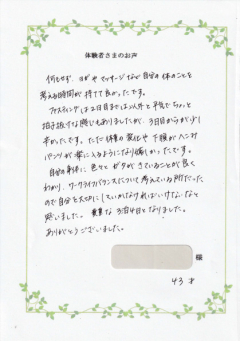 体験者さまのお声
何もせず、ヨガやマッサージなど自分の体のことを
考える時間が持てて良かったです。
ファスティングは2日目までは以外と平気でちょっと
拍子抜けな感じもありましたが、3日目からが少し
辛かったです。ただ体重の変化や下腹がへこみ
パンツが楽に入るようになり嬉しかったです。
自分の身体に、色々とガタがきていることが良く
わかり、ワークライフバランスについて考えている所だった
ので自分を大切にしていかなければいけないなと
思いました。貴重な3泊4日となりました。
ありがとうございました。
様
43才